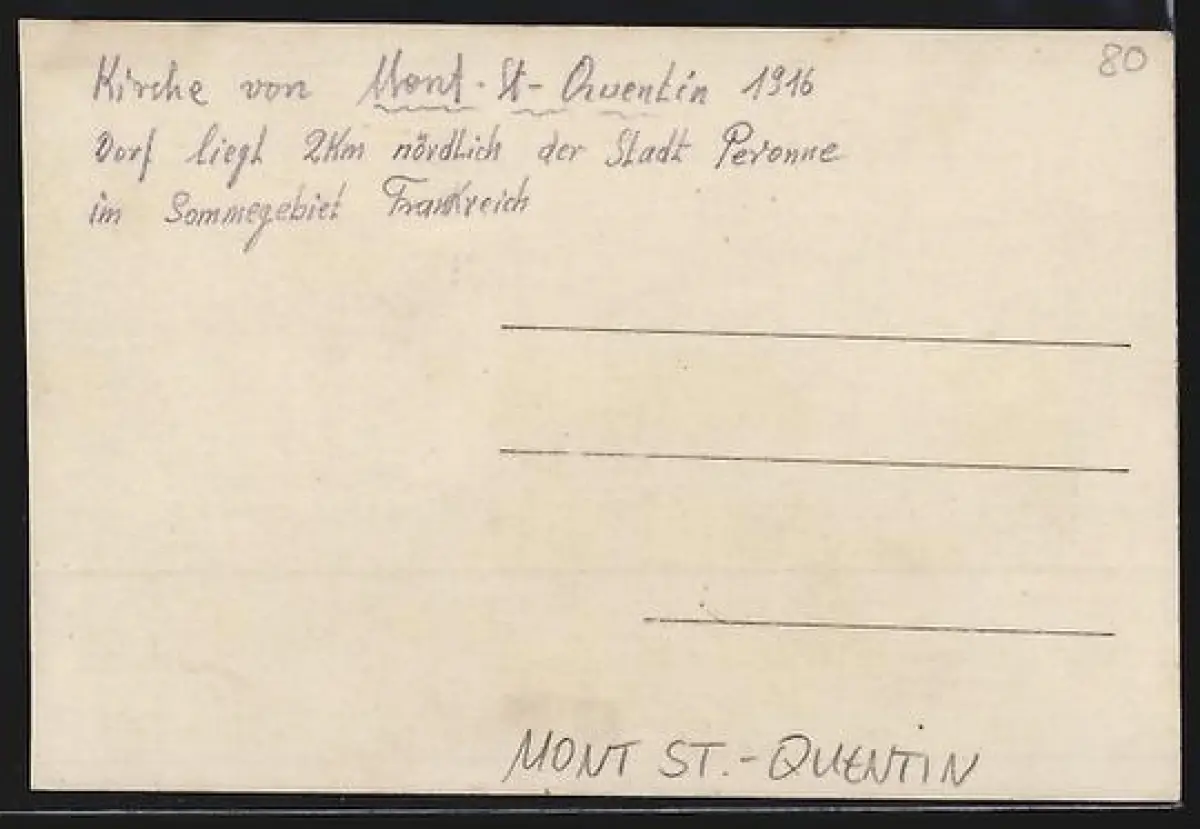 80
Kirche von Mont-St-Quentin 1916
Dorf liegt 2Km nördlich der Stadt Peronne
im Sommegebiet Frankreich
MONT ST.-QUENTIN